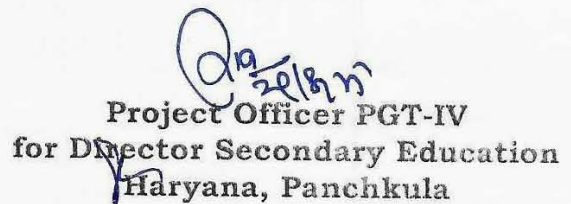 Project Officer PGT-IV
for Director Secondary Education
Haryana, Panchkula